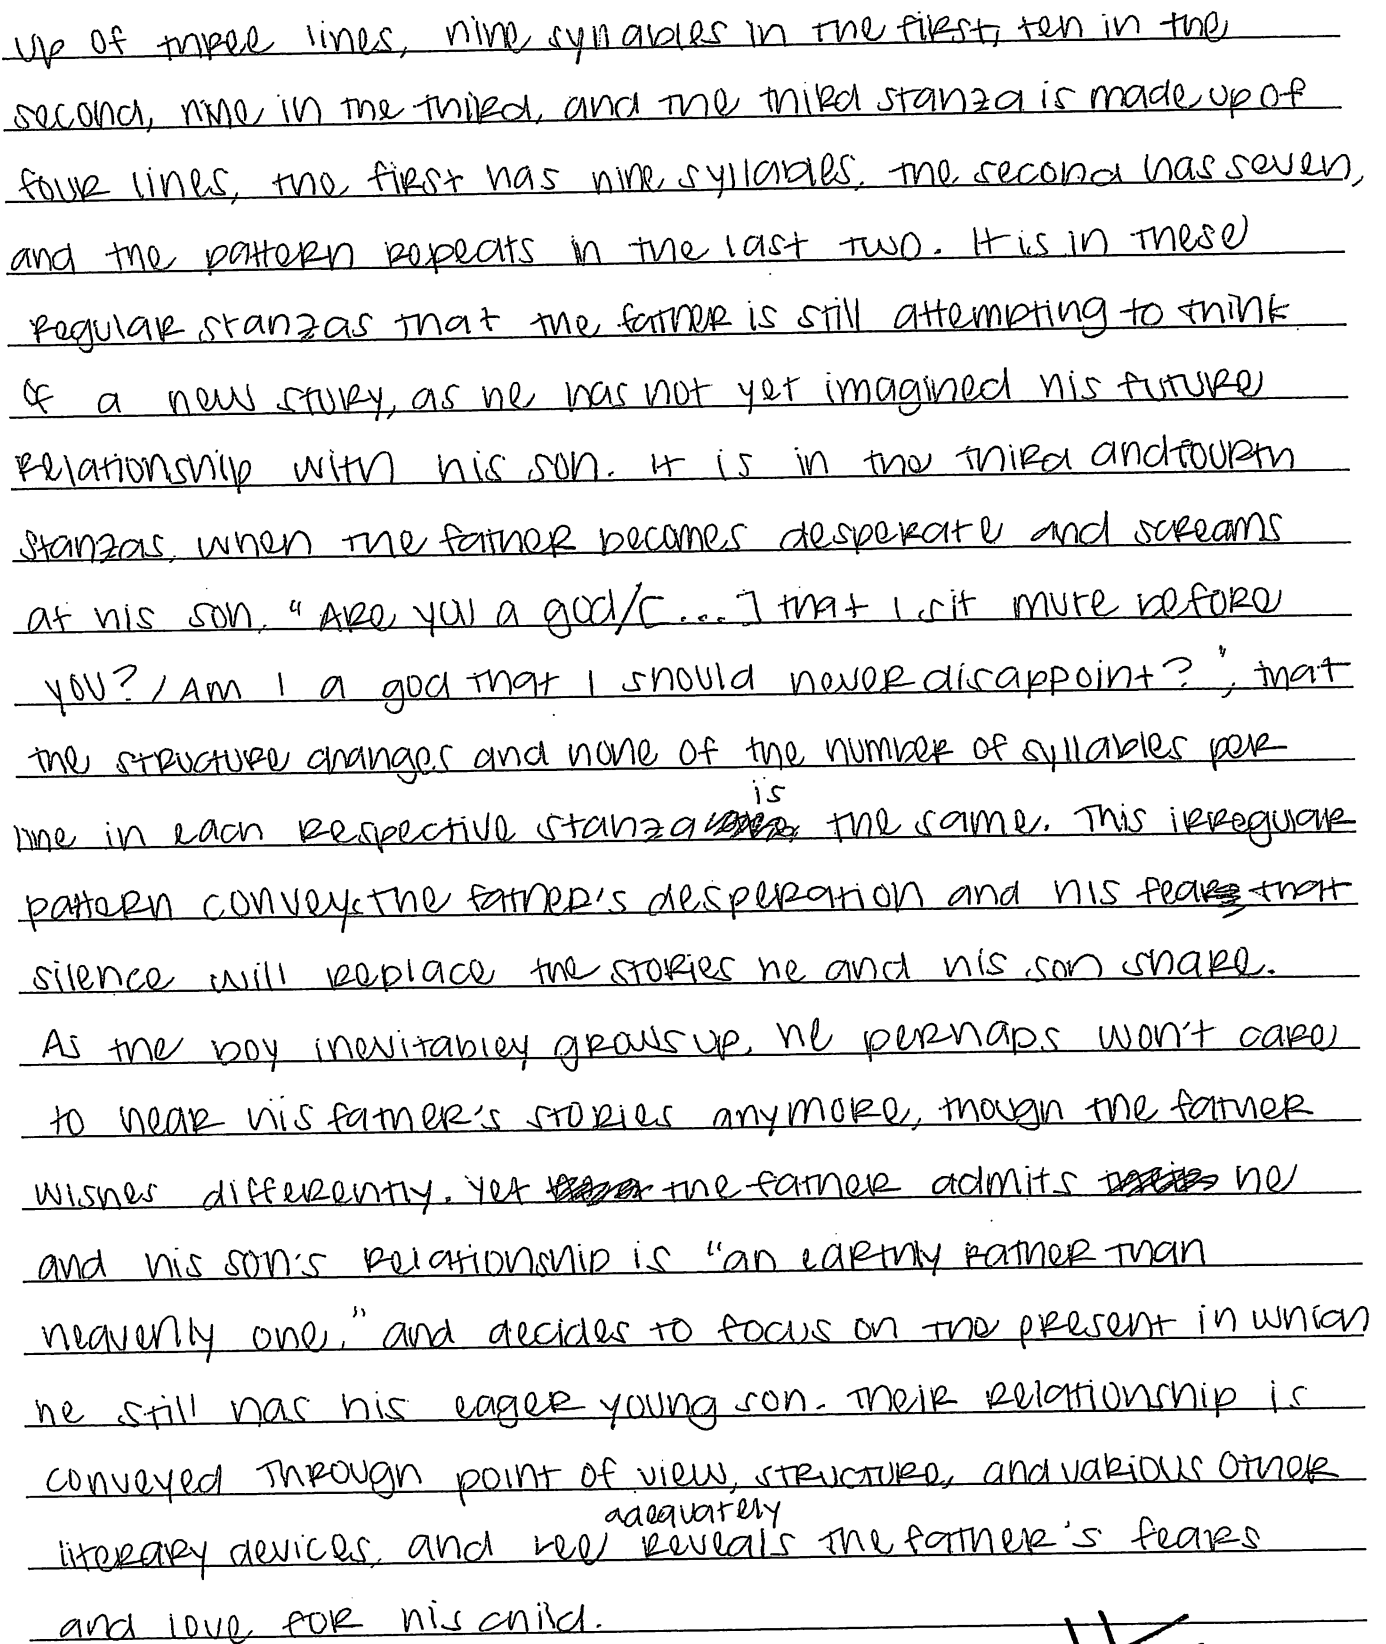 up of three lines, nine syllables in the first, ten in the
second, nine in the third, and the third stanza is made up of
four lines, the first has nine syllables, the second has seven,
and the pattern repeats in the last two. It is in these
regular stanzas that the father is still attempting to think
of a new story, as he has not yet imagined his future
relationship with his son. It is in the third and fourth
stanzas, when the father becomes desperate and screams
at his son, "Are you a god/[...] that I sit mute before
you?/Am I a god that I should never disappoint?", that
the structure changes and none of the number of syllables per
line in each respective stanza is the same. This irregular
pattern conveys the father's desperation and his fear that
silence will replace the stories he and his son share.
As the boy inevitabley grows up, he perhaps won't care
to hear his father's stories anymore, though the father
wishes differently. Yet the father admits he
and his son's relationship is "an earthly rather than
heavenly one," and decides to focus on the present in which
he still has his eager young son. Their relationship is
conveyed through point of view, structure, and various other
literary devices, and Lee adequately reveals the father's fears
and love for his child.